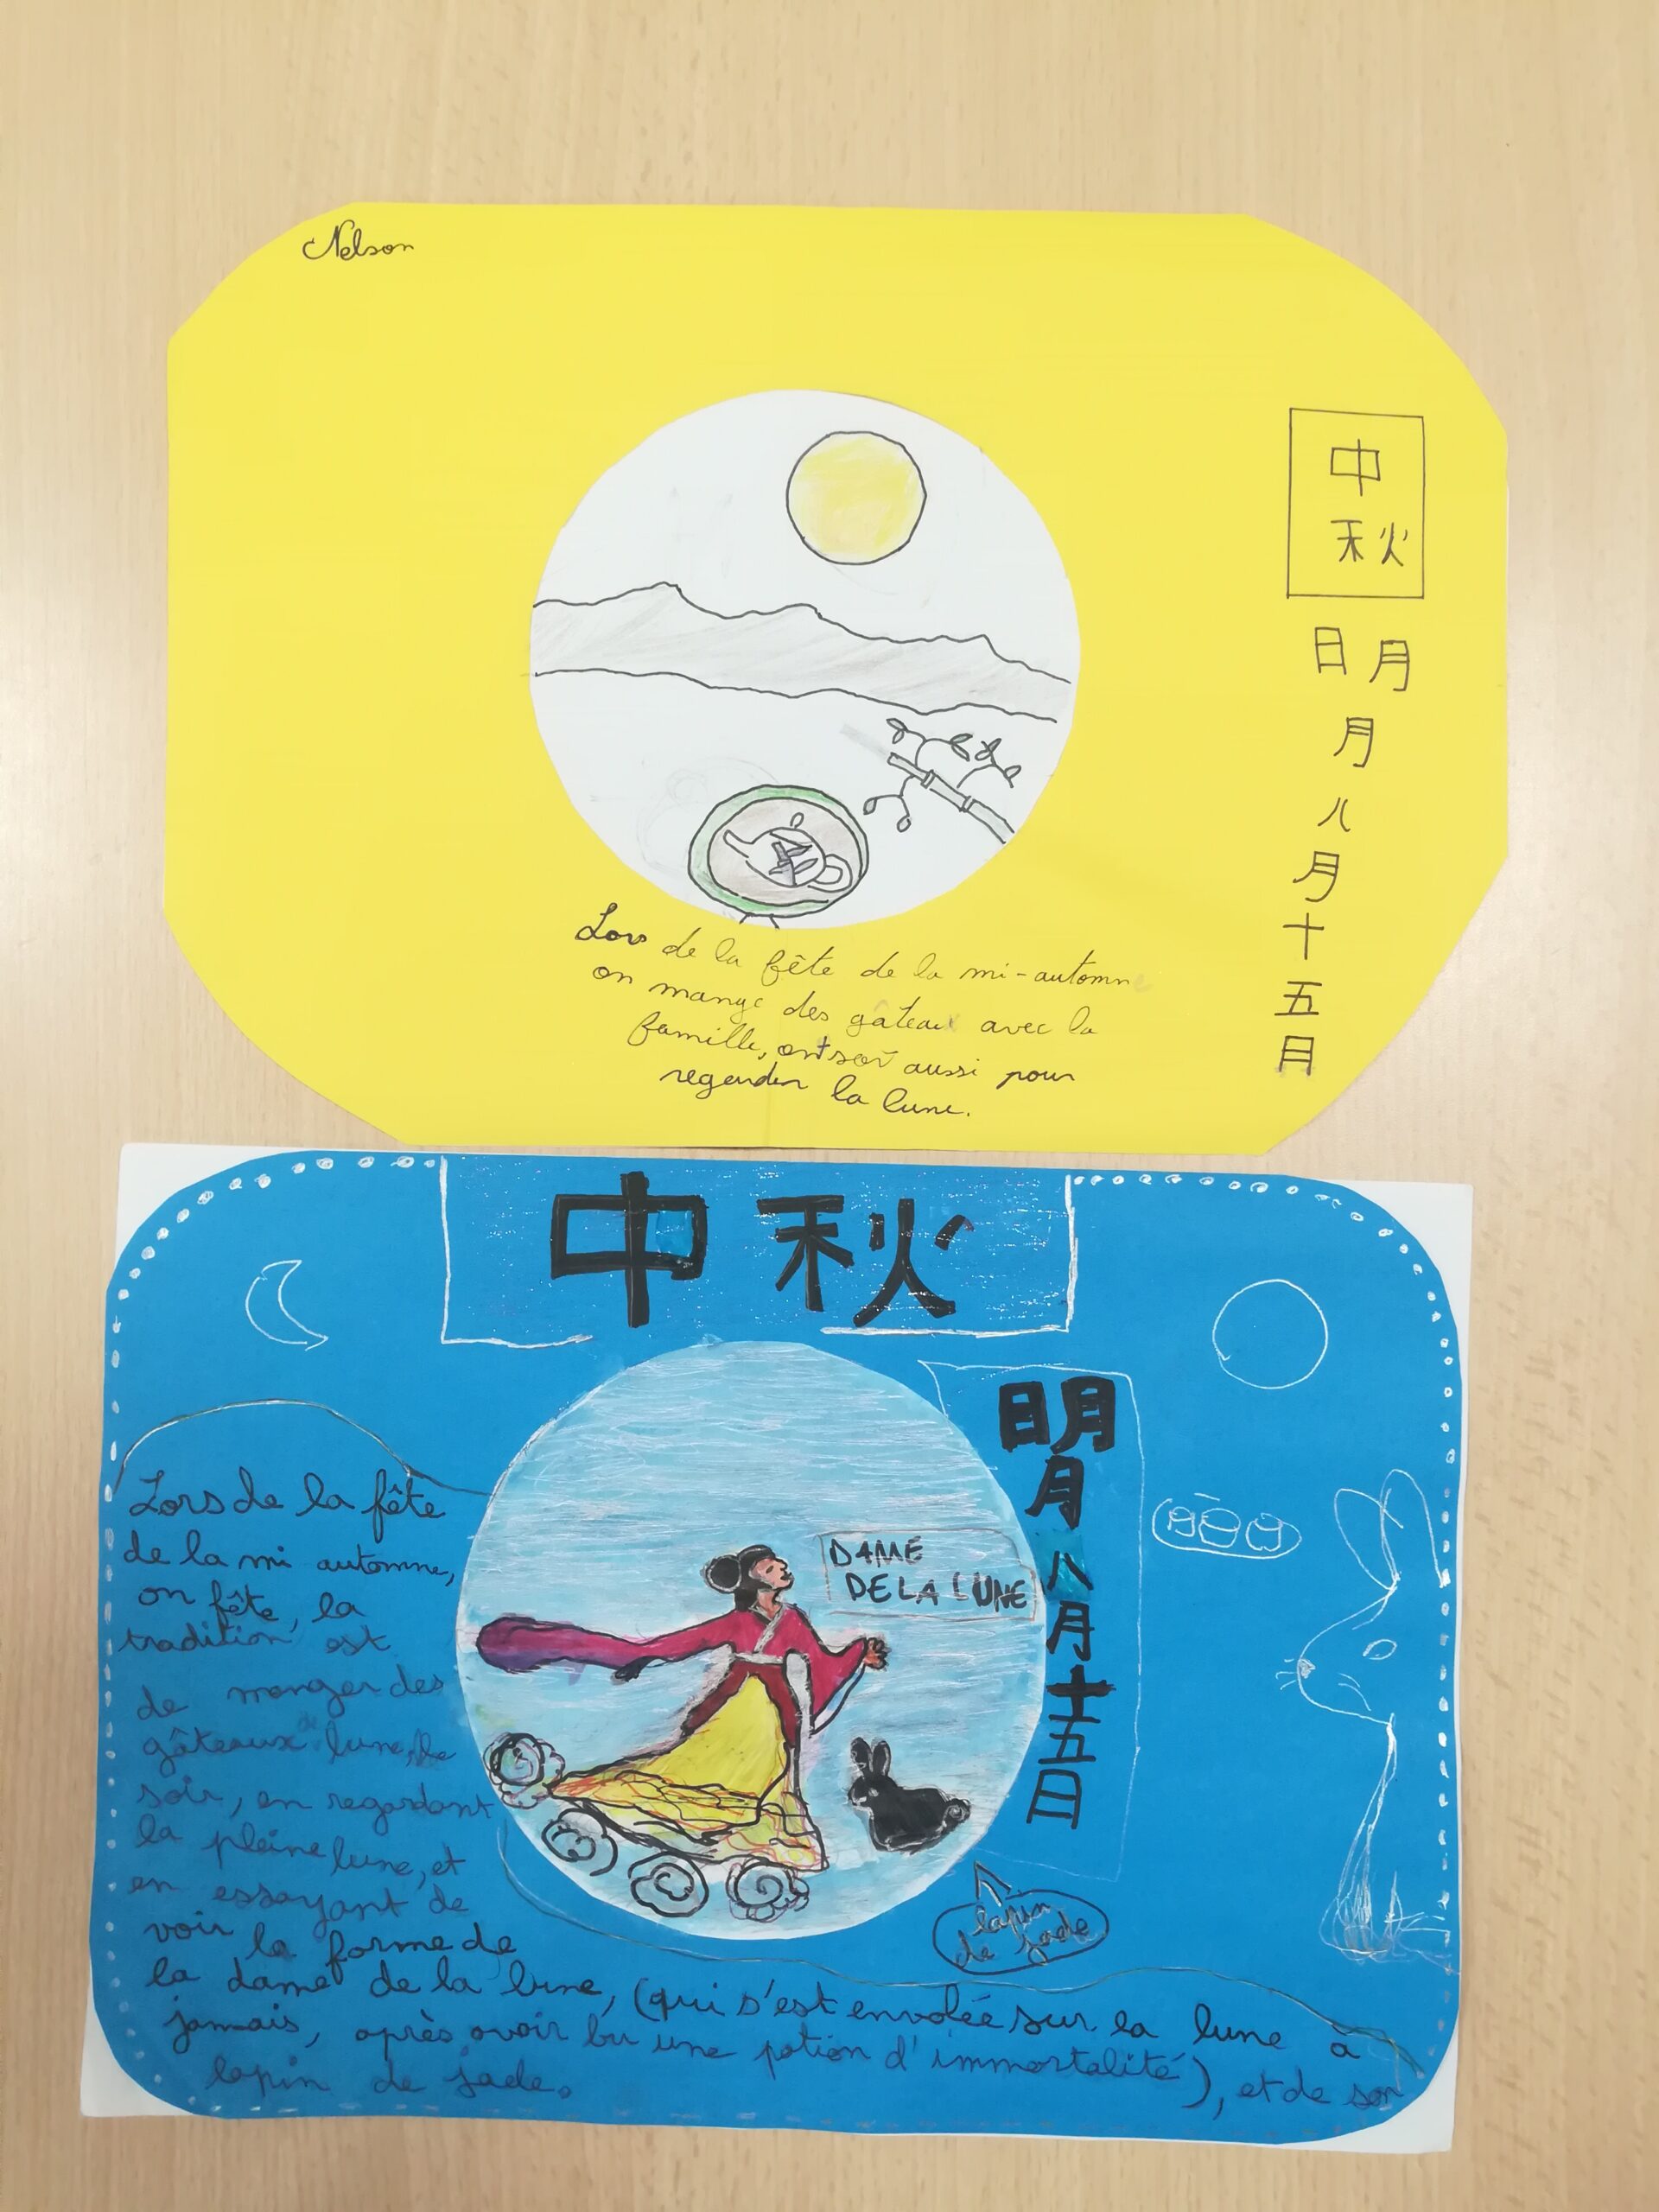 Nelson
中
秋
明
月
八
月
十
五
月
Lors de la fête de la mi-automne
on mange des gâteaux avec la
famille, on sor aussi pour
regarder la lune.
中秋
明
月
八
月
十
五
日
DAME
DE LA LUNE
lapin
de jade
Lors de la fête
de la mi automne,
on fête, la
tradition est
de manger des
gâteaux de lune, le
soir, en regardant
la pleine lune, et
en essayant de
voir la forme de
la dame de la lune, (qui s'est envolée sur la lune à
jamais, après avoir bu une potion d'immortalité), et de son
lapin de jade.